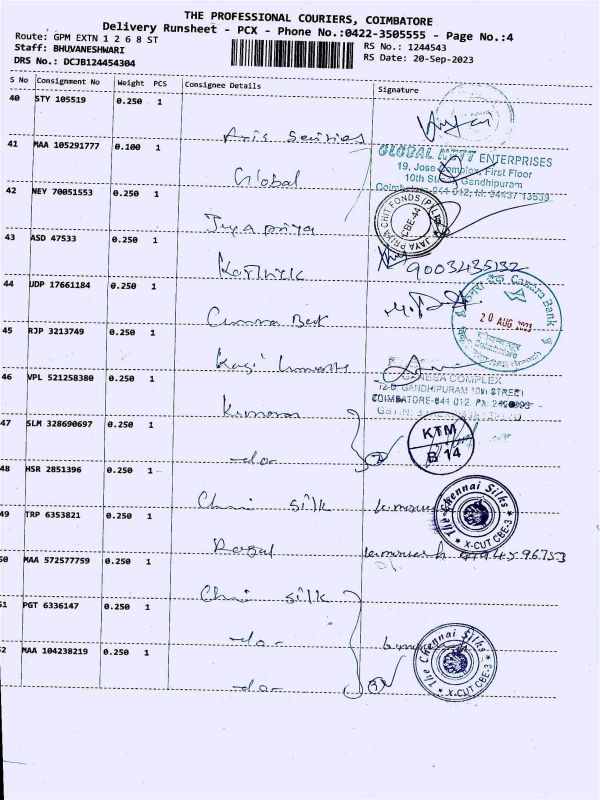 THE PROFESSIONAL COURIERS, COIMBATORE
Delivery Runsheet - PCX - Phone No.:0422-3505555 - Page No.:4
Route: GPM EXTN 1 2 6 8 ST
RS No.: 1244543
Staff: BHUVANESHWARI
RS Date: 20-Sep-2023
DRS No.: DCJB124454304
S No Consignment No Weight PCS Consignee Details Signature
40 STY 105519 0.250 1
41 MAA 105291777 0.100 1
Global
GLOBAL NETT ENTERPRISES
19, Jose Complex, First Floor
10th St Gandhipuram
Coimbatore-641 012, M: 94437 13539
42 NEY 70051553 0.250 1
Jayapriya
JAYA PRIYA CHIT FONDS (P) LTD
CBE-44
43 ASD 47533 0.250 1
Karthick
9003435132
44 UDP 17661184 0.250 1
Canara Bank
20 AUG 2023
Coimbatore
45 RJP 3213749 0.250 1
46 VPL 521258380 0.250 1
Kumaran
GANESA COMPLEX
GANDHIPURAM 10th STREET
COIMBATORE-641 012.
47 SLM 328690697 0.250 1
-do-
KTM
B 14
48 HSR 2851396 0.250 1
Chennai silk
The Chennai Silks
X-CUT CBE-3
49 TRP 6353821 0.250 1
50 MAA 572577759 0.250 1
Chennai silk
51 PGT 6336147 0.250 1
-do-
The Chennai Silks
X-CUT CBE-3
52 MAA 104238219 0.250 1
-do-